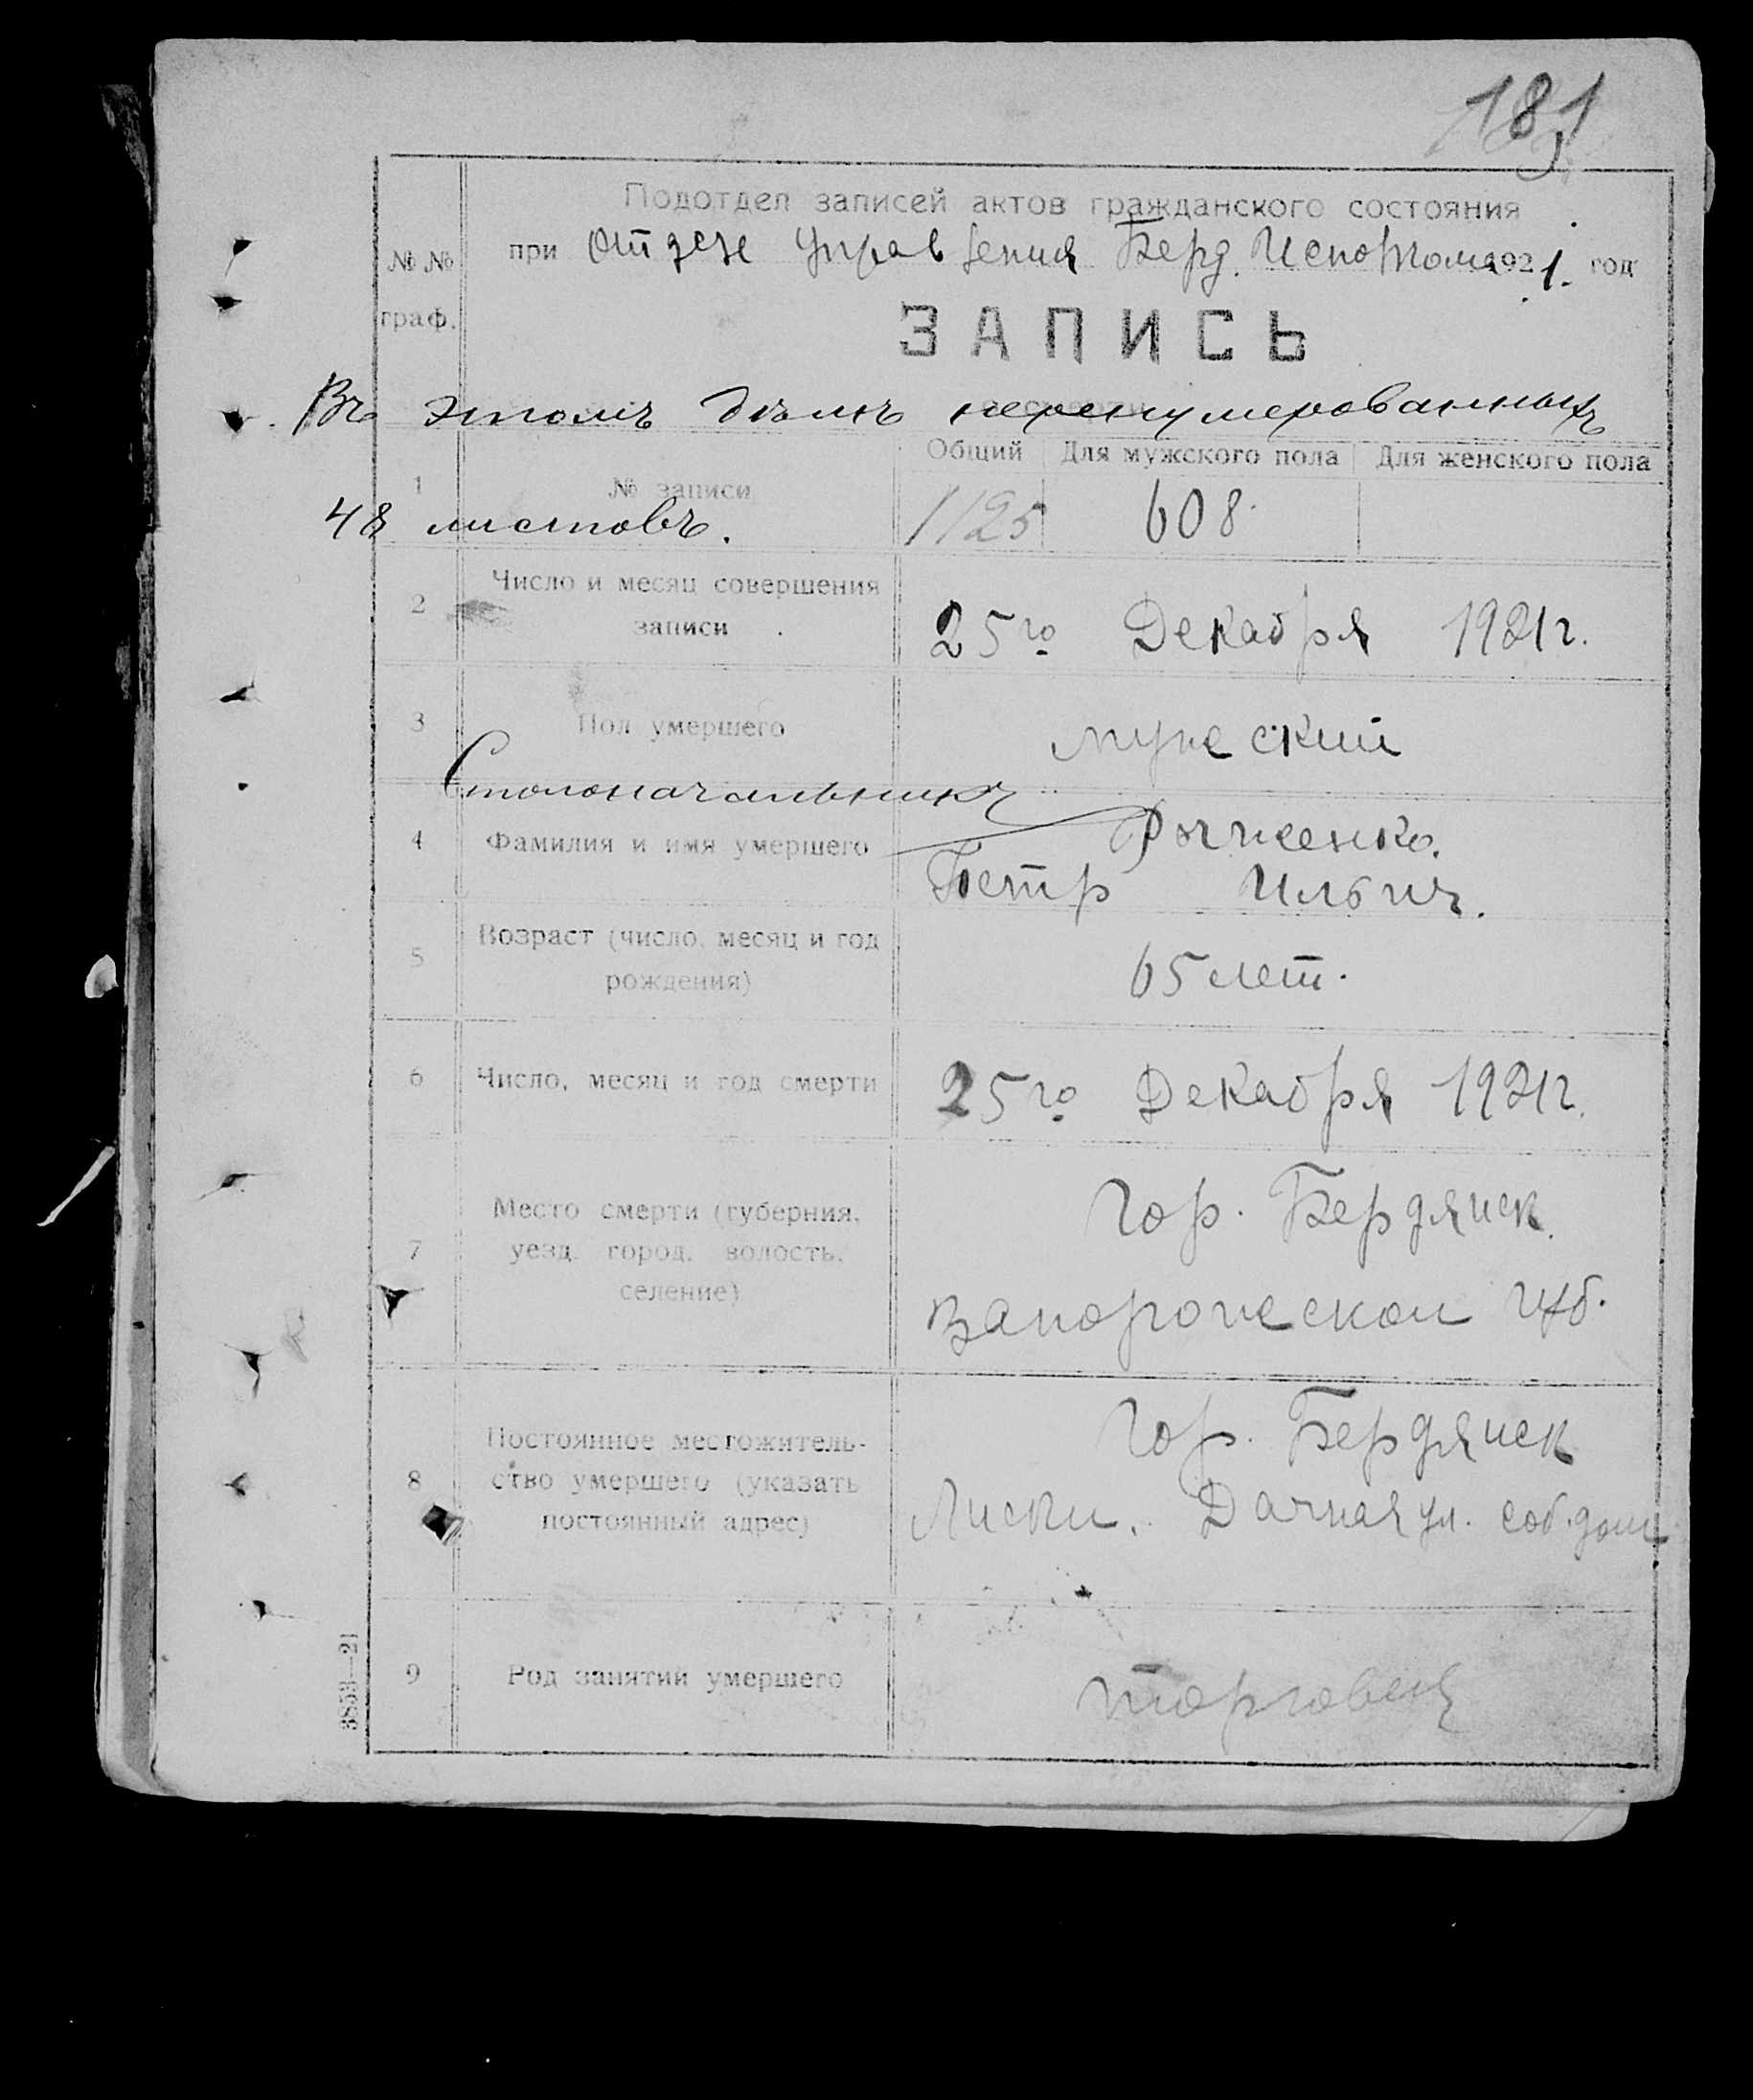 181
Подотдел записей актов гражданского состояния
при Отделе Управления Берд. Исполкома 1921. год
№№ граф.
ЗАПИСЬ
Въ этомъ дѣлѣ перенумерованныхъ
Общий Для мужского пола Для женского пола
1 № записи 1125 608
48 листовъ.
2 Число и месяц совершения
записи
25го Декабря 1921г.
3 Пол умершего мужеский
Столоначальникъ
4 Фамилия и имя умершего
Петр Ильич.
5 Возраст (число, месяц и год
рождения)
65 лет.
6 Число, месяц и год смерти 25го Декабря 1921г.
7 Место смерти (губерния,
уезд, город, волость,
селение)
Гор. Бердянск.
Запорожеской губ.
8 Постоянное местожитель-
ство умершего (указать
постоянный адрес)
Гор. Бердянск
Лиски. Дачная ул. соб. дом
9 Род занятий умершего торговец
3853—21